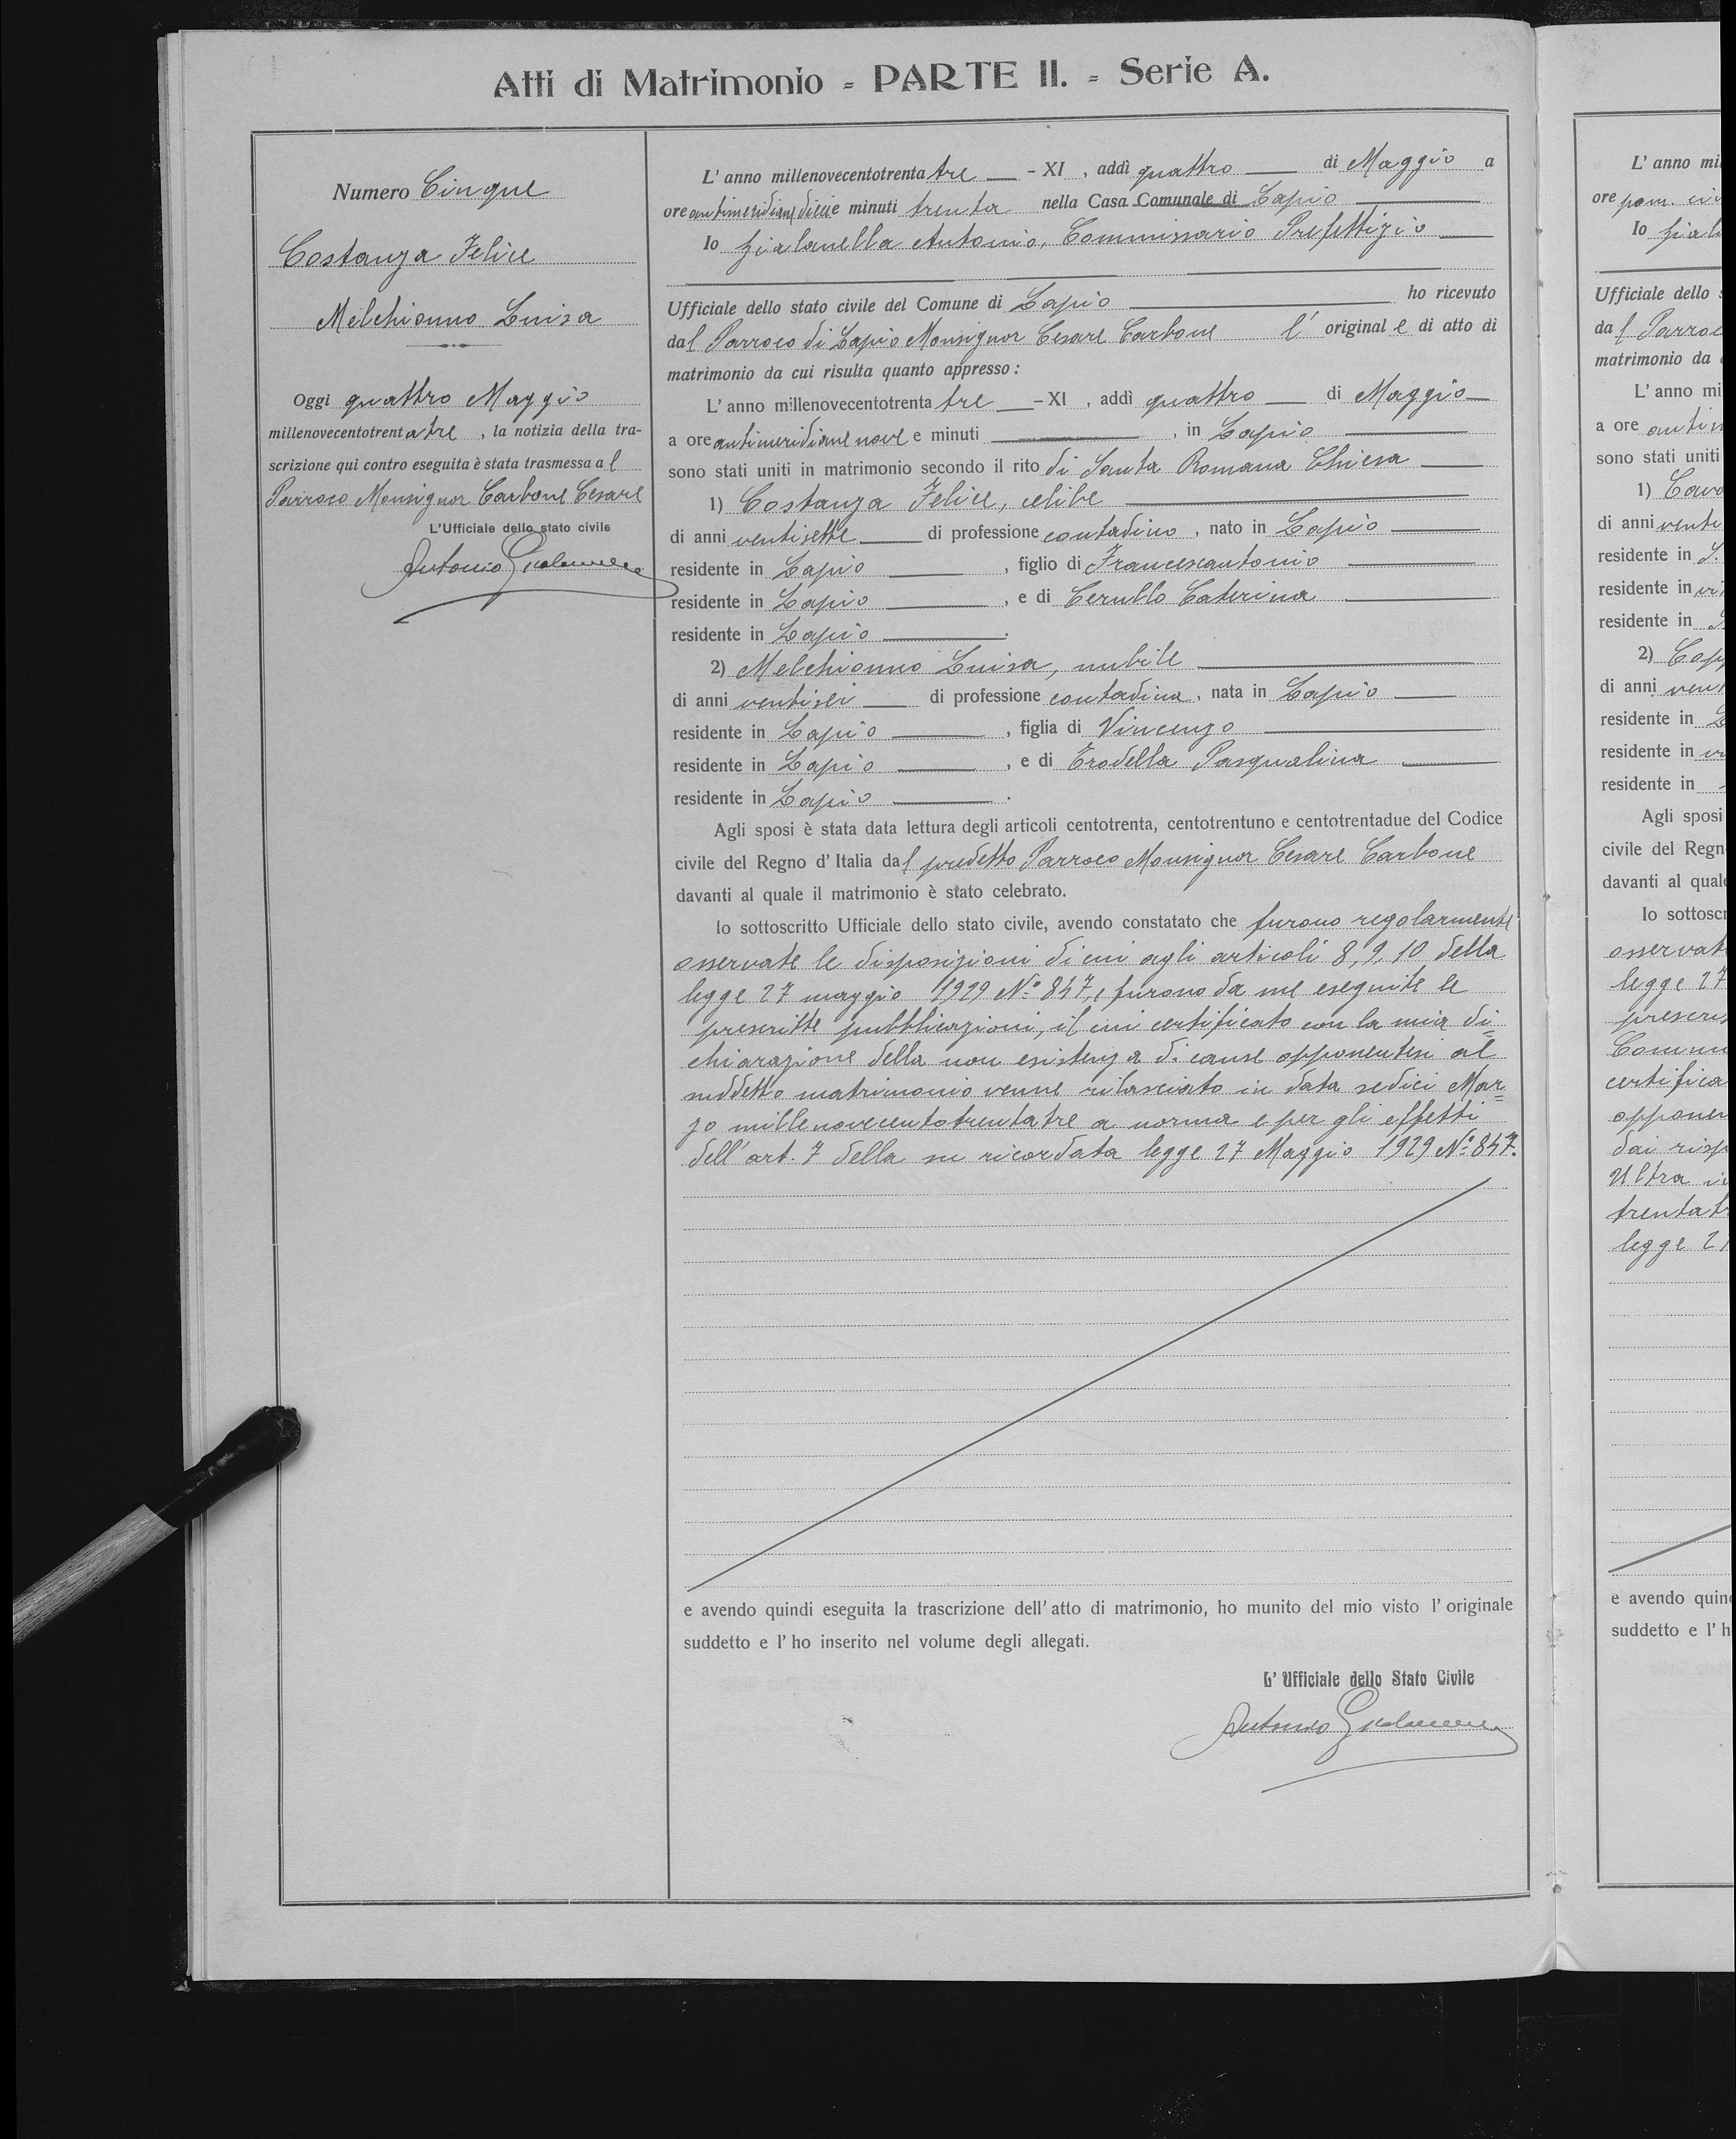 Atti di Matrimonio - PARTE II. - Serie A.
Numero Cinque
Costanza Felice
Melchionno Luisa
Oggi quattro Maggio
millenovecentotrentatre, la notizia della tra-
scrizione qui contro eseguita è stata trasmessa al
Parroco Monsignor Carbone Cesare
L'Ufficiale dello stato civile
Antonio
L' anno millenovecentotrentatre - XI, addì quattro di Maggio a
ore antimeridiane dieci e minuti trenta nella Casa Comunale di Lapio
Io Zialanella Antonio, Commissario Prefettizio
Ufficiale dello stato civile del Comune di Lapio ho ricevuto
dal Parroco di Lapio Monsignor Cesare Carbone l' originale di atto di
matrimonio da cui risulta quanto appresso:
L' anno millenovecentotrentatre - XI, addì quattro di Maggio
a ore antimeridiane nove e minuti , in Lapio
sono stati uniti in matrimonio secondo il rito di Santa Romana Chiesa
1) Costanza Felice, celibe
di anni ventisette di professione contadino, nato in Lapio
residente in Lapio, figlio di Francescantonio
residente in Lapio, e di Cerullo Caterina
residente in Lapio.
2) Melchionno Luisa, nubile
di anni ventisei di professione contadina, nata in Lapio
residente in Lapio, figlia di Vincenzo
residente in Lapio, e di Trodella Pasqualina
residente in Lapio.
Agli sposi è stata data lettura degli articoli centotrenta, centotrentuno e centotrentadue del Codice
civile del Regno d' Italia dal predetto Parroco Monsignor Cesare Carbone
davanti al quale il matrimonio è stato celebrato.
Io sottoscritto Ufficiale dello stato civile, avendo constatato che furono regolarmente
osservate le disposizioni di cui agli articoli 8, 9, 10 della
legge 27 maggio 1929 N.º 847, e furono da me eseguite le
prescritte pubblicazioni, il cui certificato con la mia di=
chiarazione della non esistenza di cause opponentesi al
suddetto matrimonio venne rilasciato in data sedici Mar=
zo millenovecentotrentatre a norma e per gli effetti
dell'art. 7 della su ricordata legge 27 Maggio 1929 N.º 847.
e avendo quindi eseguita la trascrizione dell' atto di matrimonio, ho munito del mio visto l' originale
suddetto e l' ho inserito nel volume degli allegati.
L' Ufficiale dello Stato Civile
Antonio
L' anno mi
ore pom.
Io Zial
Ufficiale dello
dal Parroc
matrimonio da
L' anno mi
a ore antim
sono stati uniti
1) Cavo
di anni venti
residente in S.
residente in
residente in
2) Copp
di anni vent
residente in L
residente in
residente in
Agli sposi
civile del Regn
davanti al qual
Io sottoscr
osservat
legge 27
prescri
Comun
certifica
opponen
dai risp
Ultra
trentat
legge 2
e avendo quin
suddetto e l' h